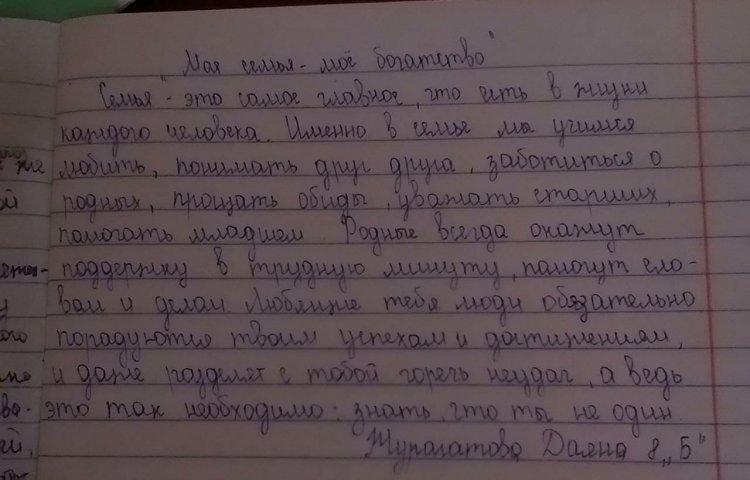 "Моя семья - моё богатство"
Семья - это самое главное, что есть в жизни
каждого человека. Именно в семье мы учимся
любить, понимать друг друга, заботиться о
родных, прощать обиды, уважать старших,
помогать младшем. Родные всегда окажут
поддержку в трудную минуту, помогут сло-
вом и делом. Любящие тебя люди обязательно
порадуются твоим успехам и достижениям,
и даже разделят с тобой горечь неудач, а ведь
это так необходимо: знать, что ты не один.
Даяна 8 „Б"